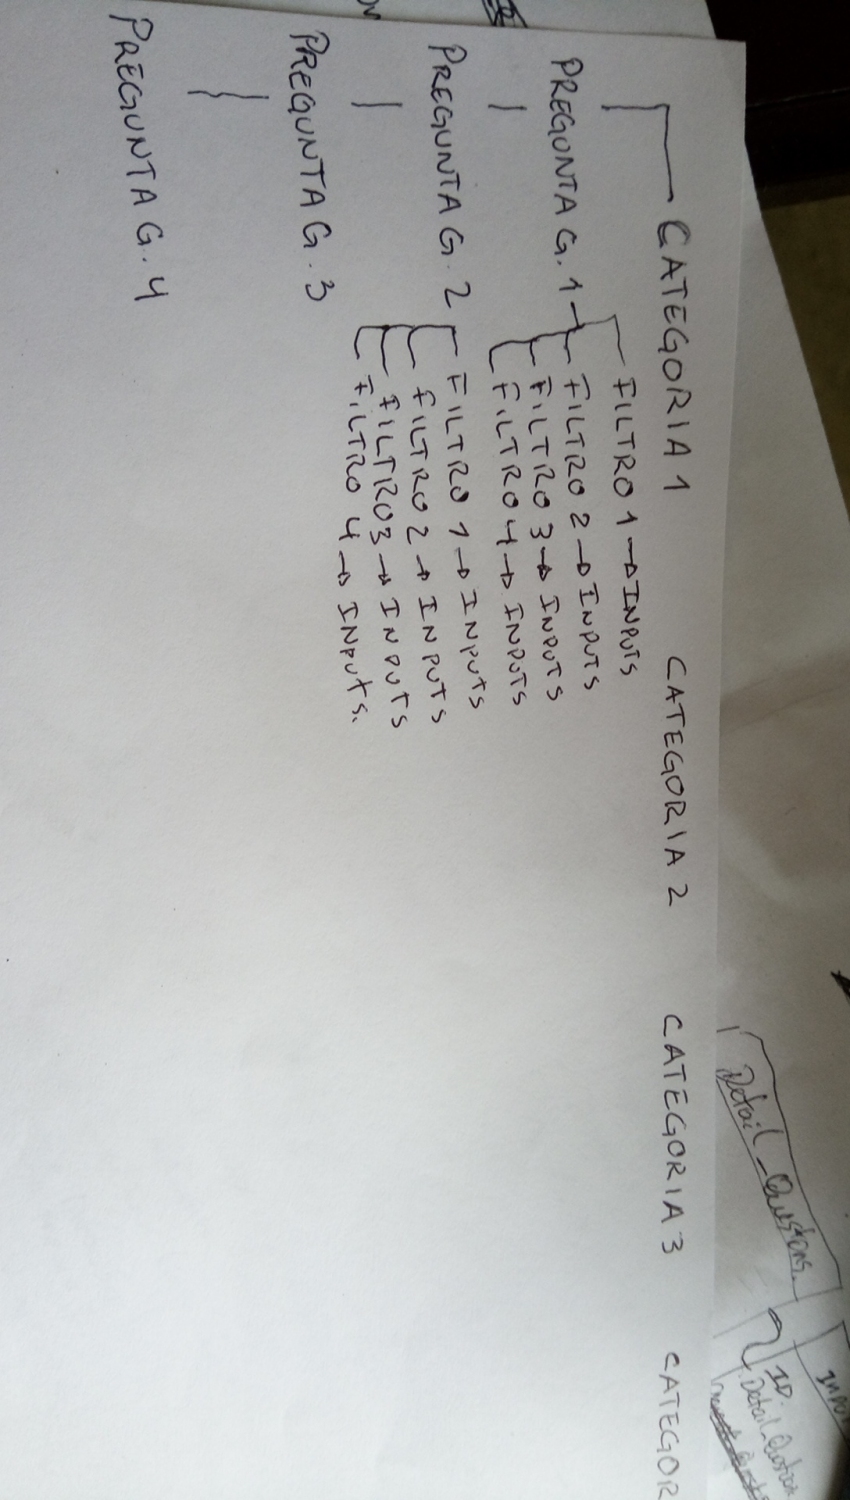 CATEGORIA 1 CATEGORIA 2 CATEGORIA 3 CATEGOR
FILTRO 1 → INPUTS
PREGUNTA G. 1 FILTRO 2 → INPUTS
FILTRO 3 → INPUTS
FILTRO 4 → INPUTS
PREGUNTA G. 2 FILTRO 1 → INPUTS
FILTRO 2 → INPUTS
FILTRO 3 → INPUTS
FILTRO 4 → INPUTS.
PREGUNTA G. 3
PREGUNTA G. 4
Detail_Questions
ID